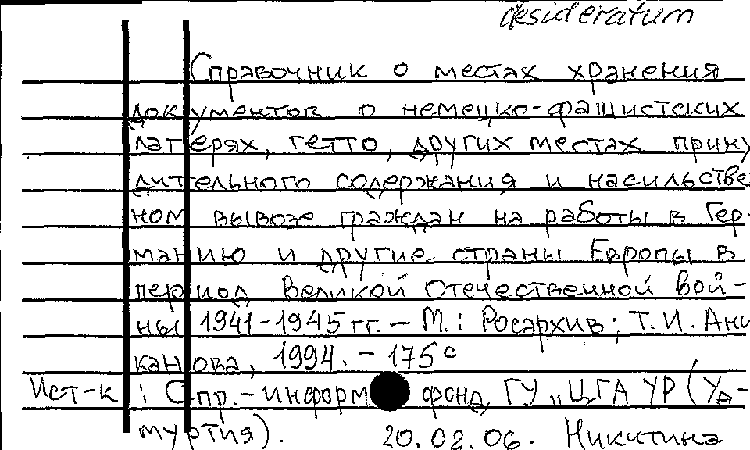 desideratum
Справочник о местах хранения
документов о немецко-фашистских
лагерях, гетто, других местах прину
дительного содержания и насильстве
ном вывозе граждан на работы в Гер-
манию и другие страны Европы в
период Великой Отечественной вой-
ны 1941-1945 гг. - М.: Росархив; Т.И. Ани
канова, 1994. - 175 с
Ист-к: Спр.-информ фонд ГУ „ЦГА УР (Уд-
муртия).
20.02.06. Никитина